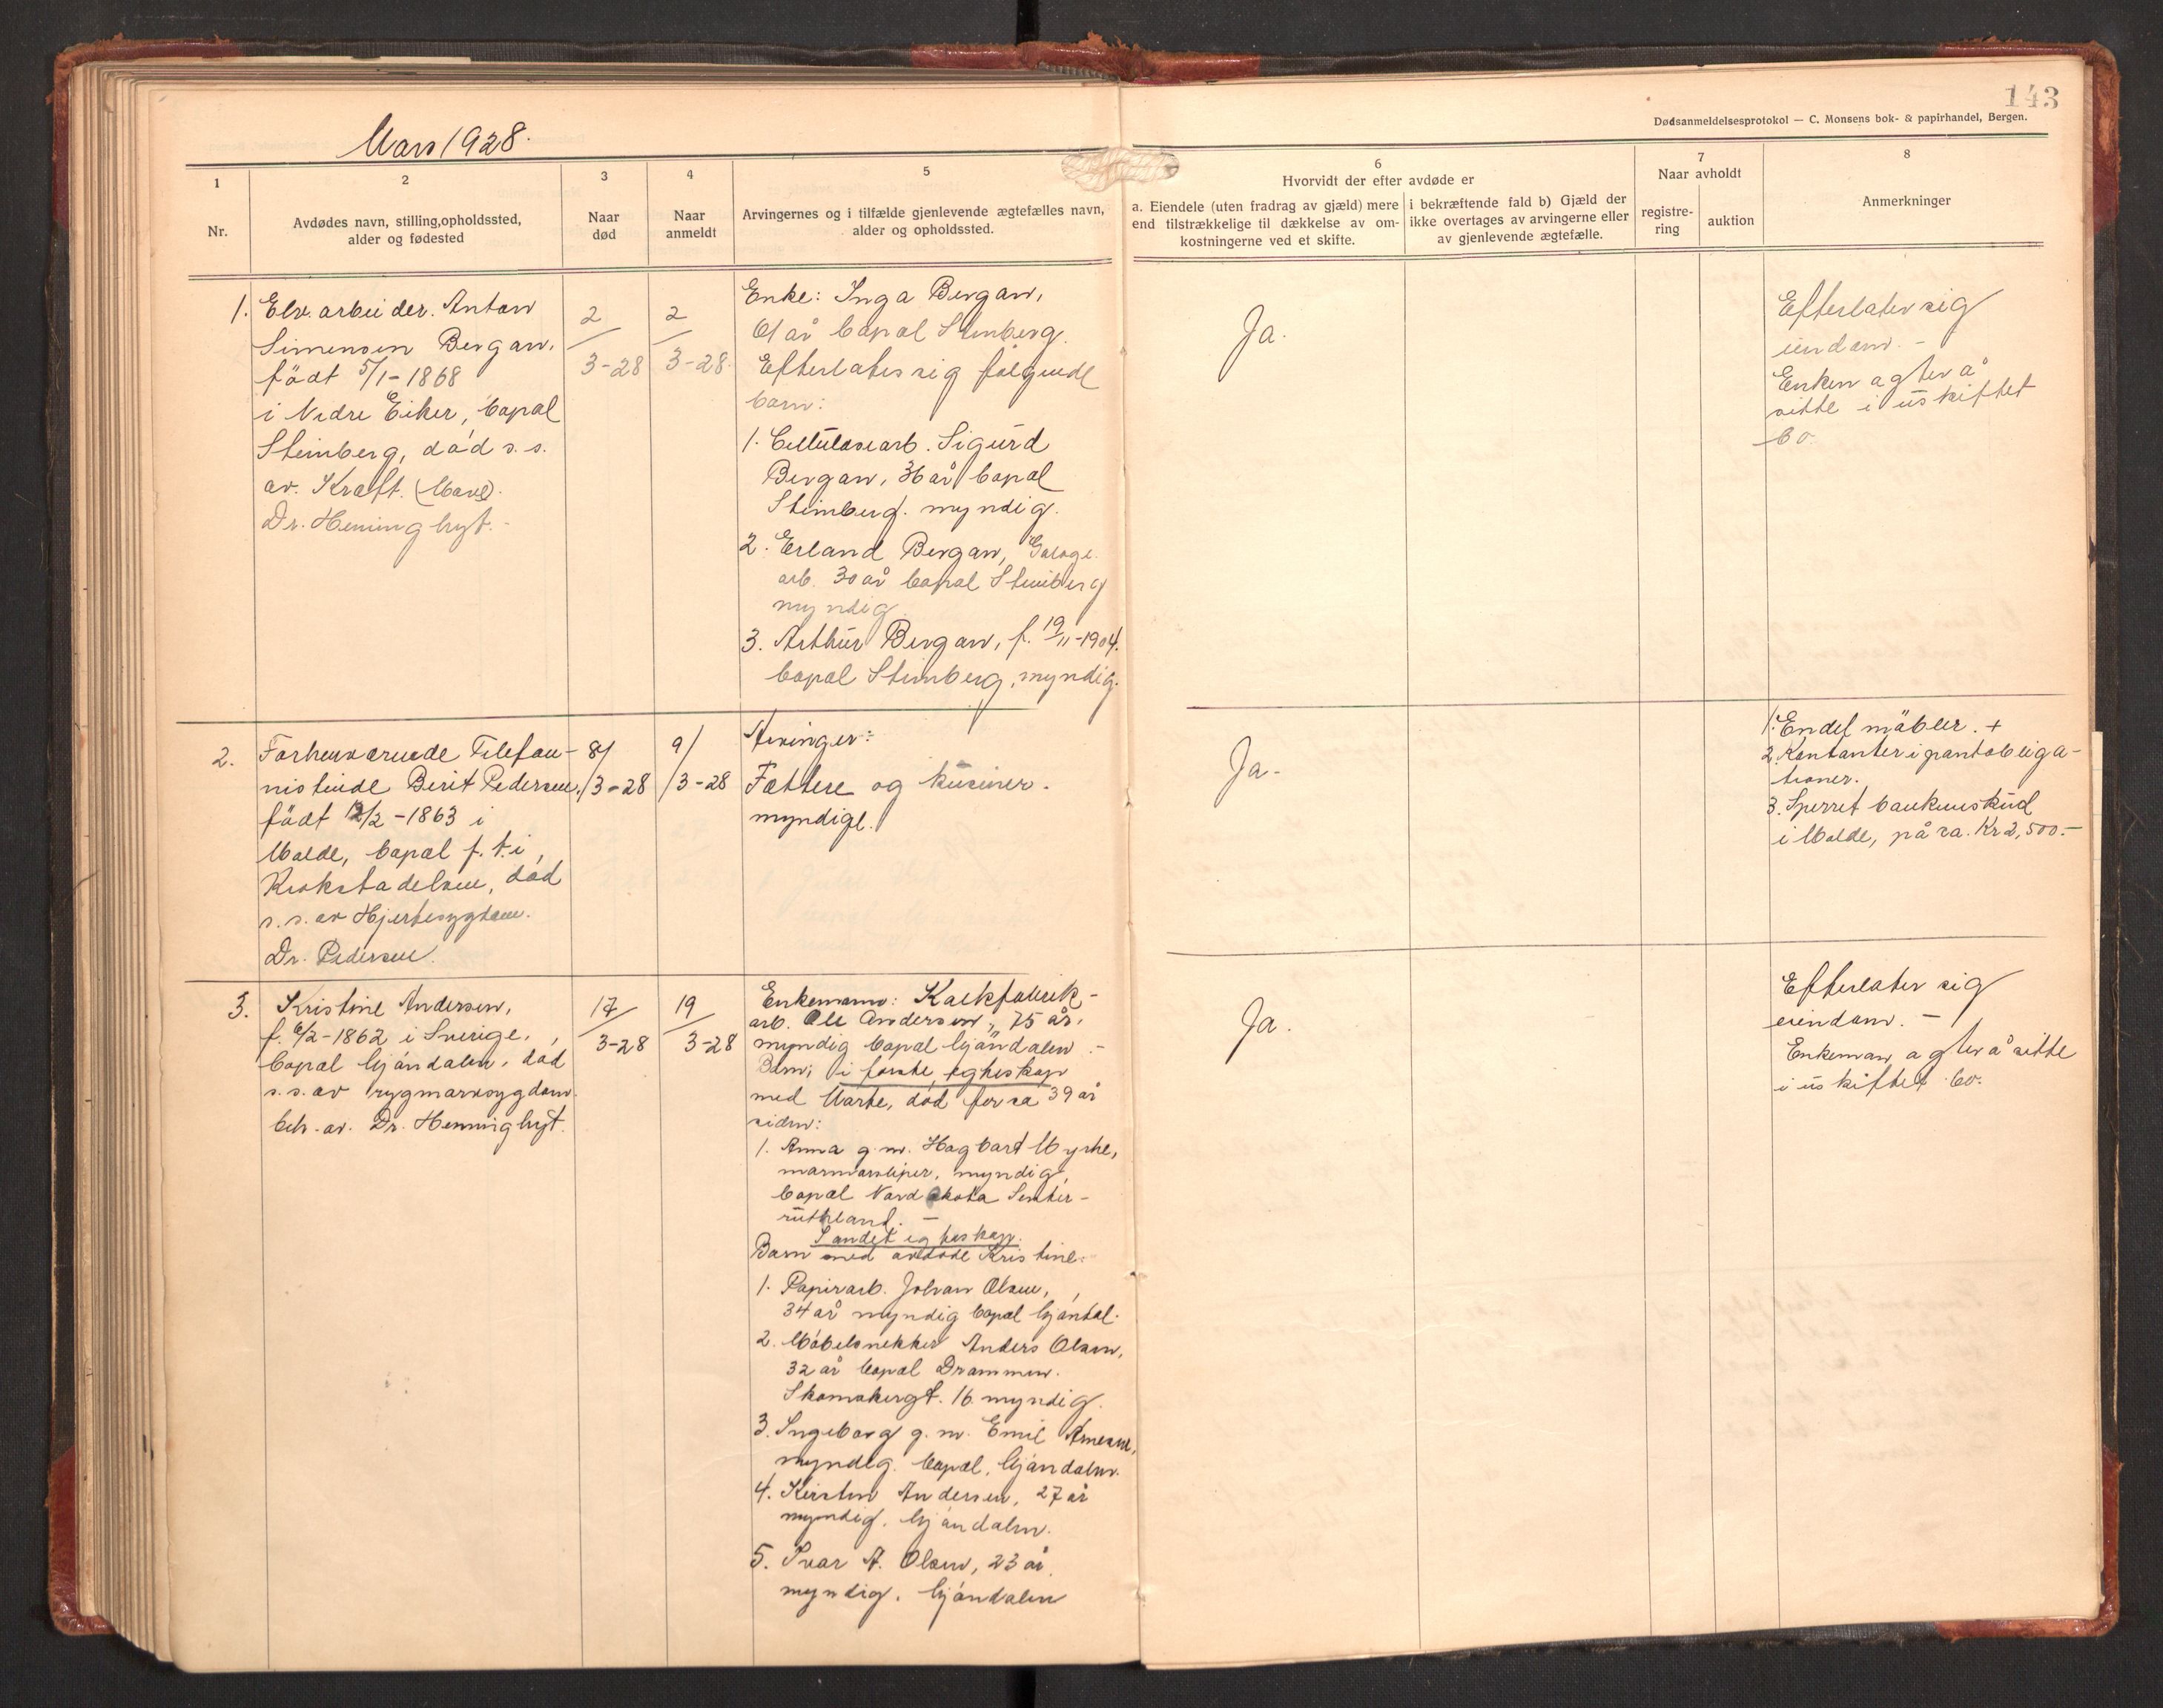 143
Dødsanmeldelsesprotokol — C. Monsens bok- & papirhandel, Bergen.
Mars 1928.
1
Nr.
2
Avdødes navn, stilling, opholdssted,
alder og fødested
3
Naar
død
4
Naar
anmeldt
5
Arvingernes og i tilfælde gjenlevende ægtefælles navn,
alder og opholdssted.
6
Hvorvidt der efter avdøde er
a. Eiendele (uten fradrag av gjæld) mere
end tilstrækkelige til dækkelse av om-
kostningerne ved et skifte.
i bekræftende fald b) Gjæld der
ikke overtages av arvingerne eller
av gjenlevende ægtefælle.
7
Naar avholdt
registre-
ring
auktion
8
Anmerkninger
1.
Elv. arbeider. Anton
Simensen Bergan,
født 5/1-1868
i Nedre Eiker, bopæl
Stenberg, død s. s.
av. Kræft. (Mave).
Dr. Henning hyt. -
2/3-28
2/3-28.
Enke: Inga Bergan,
61 år bopæl Stenberg.
Efterlates sig følgende
barn:
1. Cellulosearb. Sigurd
Bergan, 36 år bopæl
Stenberg. myndig.
2. Erland Bergan,
arb. 30 år bopæl Stenberg
myndig
3. Arthur Bergan, f. 19/11-1904.
bopæl Stenberg, myndig.
Ja.
Efterlater sig
eiendom. -
Enken agter å
sitte i uskiftet
bo.
2.
Forhenværende Telefon-
nistinde Berit Pedersen,
født 12/2-1863 i
Molde, bopæl f. t. i
Krokstadelven, død
s. s. av Hjertesygdom.
Dr. Pedersen.
8/3-28
9/3-28
Arvinger:
Fættere og kusiner.
myndige.
Ja-
1. Endel møbler. +
2. Kontanter i pantobliga-
tioner.
3. Sperret bankinskud
i Molde, på ca. Kr 2,500.-
3.
Kristine Andersen,
f. 6/2-1862 i Sverige,
bopæl Gjøndalen, død
s. s. av rygmarvsygdom.
beh. av. Dr. Henning hyt.
17/3-28
19/3-28
Enkemann: Kalkfabrik-
arb. Ole Andersen, 75 år,
myndig bopæl Gjøndalen. -
Barn i første egteskap
med Marte, død for ca 39 år
siden:
1. Anna g. m. Hagbart Myrhe,
marmorsliper, myndig,
bopæl Nord Dakota Senter-
ruthland. -
I andet egteskap.
Barn med avdøde Kristine:
1. Papirarb. Johan Olsen,
34 år myndig bopæl Gjøndal.
2. Møbelsnekker Anders Olsen,
32 år bopæl Drammen.
Skomakergt. 16 myndig.
3. Ingeborg g. m. Emil Arnesen,
myndig. bopæl. Gjøndalen.
4. Kirsten Andersen, 27 år
myndig. Gjøndalen.
5. Ivar A. Olsen, 23 år.
myndig. Gjøndalen
Ja.
Efterlater sig
eiendom. -
Enkeman agter å sitte
i uskiftet bo.